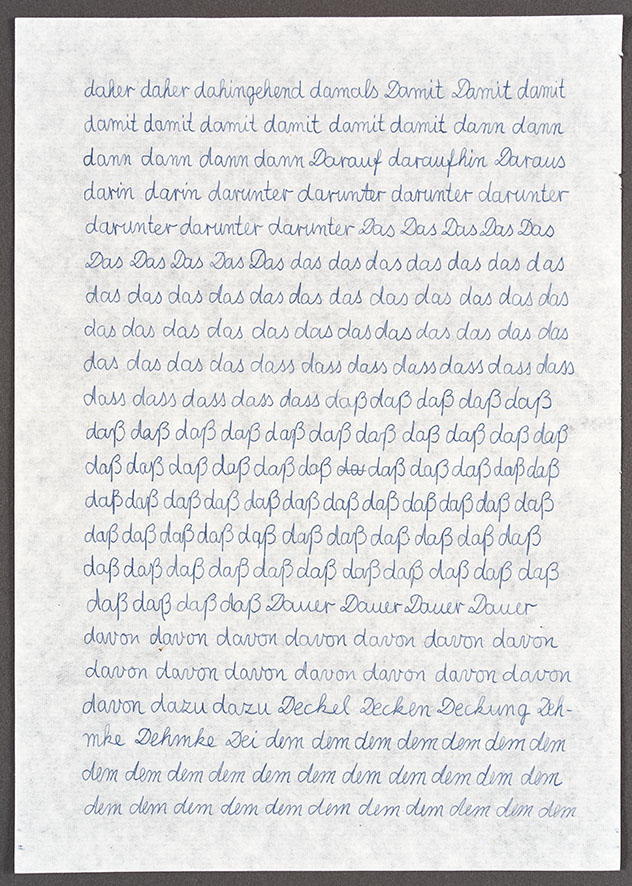 daher daher dahingehend damals Damit Damit damit
damit damit damit damit damit damit dann dann
dann dann dann dann Darauf daraufhin Daraus
darin darin darunter darunter darunter darunter
darunter darunter darunter Das Das Das Das Das
Das Das Das Das Das das das das das das das das
das das das das das das das das das das das das
das das das das das das das das das das das das
das das das das dass dass dass dass dass dass dass
dass dass dass dass dass daß daß daß daß daß
daß daß daß daß daß daß daß daß daß daß daß
daß daß daß daß daß daß das daß daß daß daß daß
daß daß daß daß daß daß daß daß daß daß daß daß
daß daß daß daß daß daß daß daß daß daß daß
daß daß daß daß daß daß daß daß daß daß daß
daß daß daß daß Dauer Dauer Dauer Dauer
davon davon davon davon davon davon davon
davon davon davon davon davon davon davon
davon dazu dazu Deckel Decken Deckung Deh-
mke Dehmke Dei dem dem dem dem dem dem dem
dem dem dem dem dem dem dem dem dem dem dem
dem dem dem dem dem dem dem dem dem dem dem